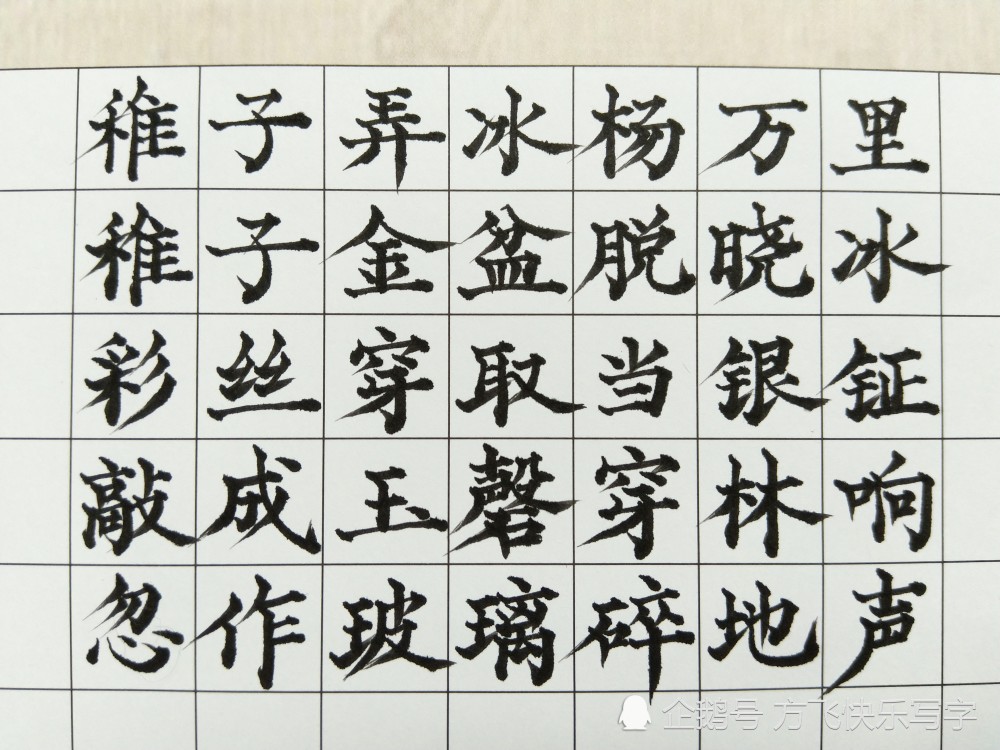 稚子弄冰杨万里
稚子金盆脱晓冰
彩丝穿取当银钲
敲成玉磬穿林响
忽作玻璃碎地声
企鹅号 方飞快乐写字